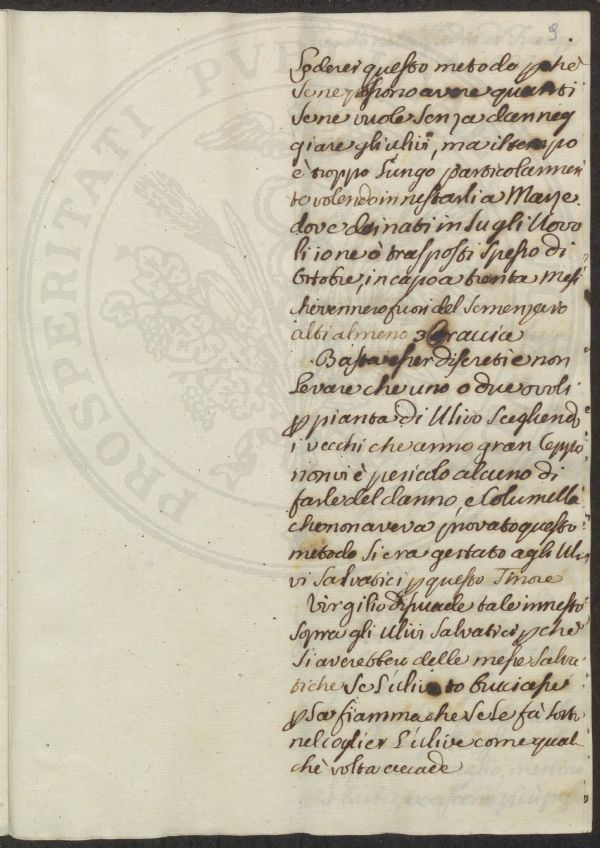 9.
Goderei questo metodo pche
se ne possono avere quanti
se ne vuole senza danneg
giare gli ulivi, ma il tempo
è troppo lungo particolarmen
te volendo innestarli a Marze
dove dai nati in su gli Uovo
li io ne ò trasposti spesso di
Ottobre, in capo a trenta mesi
che vennero fuori del semenzaro
alti almeno 3 Braccia
Basta esser discreti e non
Levare che uno o due ovoli
p pianta di Ulivo scegliendo
i vecchi che anno gran Ceppo
non vi è pericolo alcuno di
farle del danno, e Columella
che non aveva provato questo
metodo si era gettato agli Uli
vi salvatici p questo Timore
Virgilio disuade tale innesto
sopra gli Ulivi salvatici pche
si averebbero delle messe salva
tiche se l'uliveto bruciasse
p la fiamma che se le fà sotto
nel coglier l'ulive come qual
chè volta accade
PROSPERITATI PUBLICAE